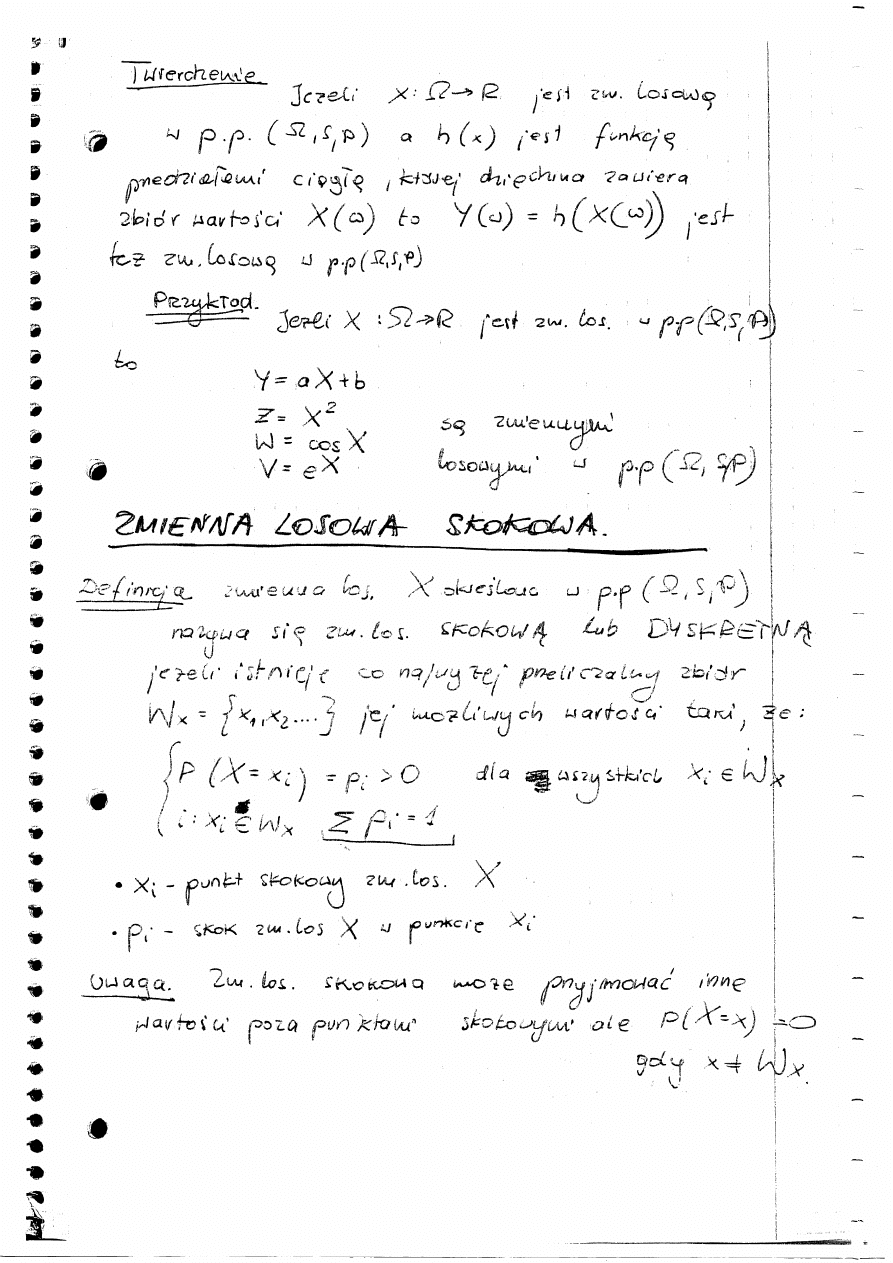 Twierdzenie
Jeżeli X: Ω→R jest zm. losową
w p.p. (Ω,S,P) a h(x) jest funkcją
przedziałami ciągłą, której dziedzina zawiera
zbiór wartości X(ω) to Y(ω) = h(X(ω)) jest
też zm. losową w p.p (Ω,S,P)
Przykład.
Jeżeli X : Ω→R jest zm. los. w p.p (Ω,S,P)
to
Y = aX+b
Z = X²
W = cos X
V = e^X
są zmiennymi
losowymi w p.p (Ω, S,P)
ZMIENNA LOSOWA SKOKOWA.
Definicja zmienna los. X określona w p.p (Ω,S,P)
nazywa się zm. los. SKOKOWĄ lub DYSKRETNĄ
jeżeli istnieje co najwyżej przeliczalny zbiór
Wx = {x₁,x₂....} jej możliwych wartości taki, że:
P (X=xᵢ) = pᵢ >0 dla wszystkich xᵢ ∈ Wx
i: xᵢ ∈ Wx Σ pᵢ = 1
• xᵢ - punkt skokowy zm. los. X
• pᵢ - skok zm. los X w punkcie xᵢ
Uwaga. Zm. los. skokowa może przyjmować inne
wartości poza punktami skokowymi ale P(X=x) =0
gdy x ≠ Wx.